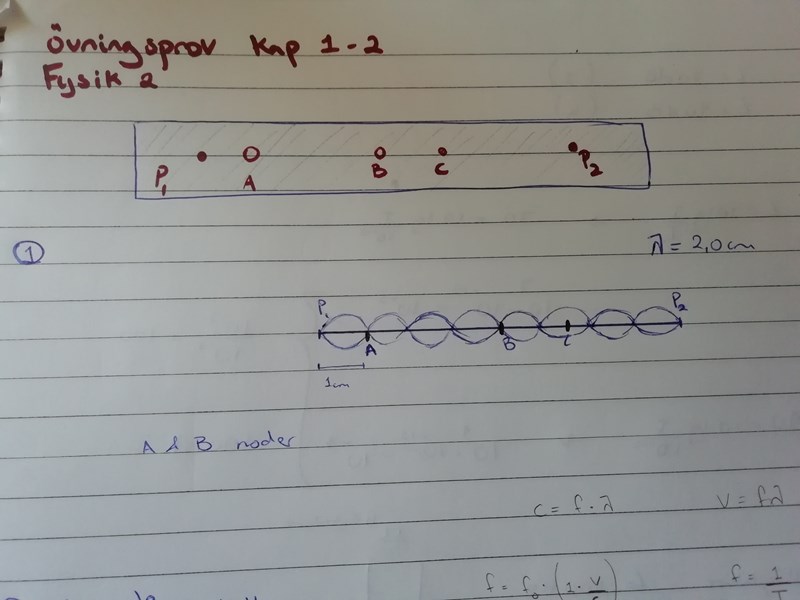 Övningsprov Kap 1-2
Fysik 2
P₁ A B C P₂
1
λ = 2,0 cm
P₁ A B C P₂
1cm
A & B noder
c = f · λ v = fλ
f = f₀ · (1 · v/
f = 1/T